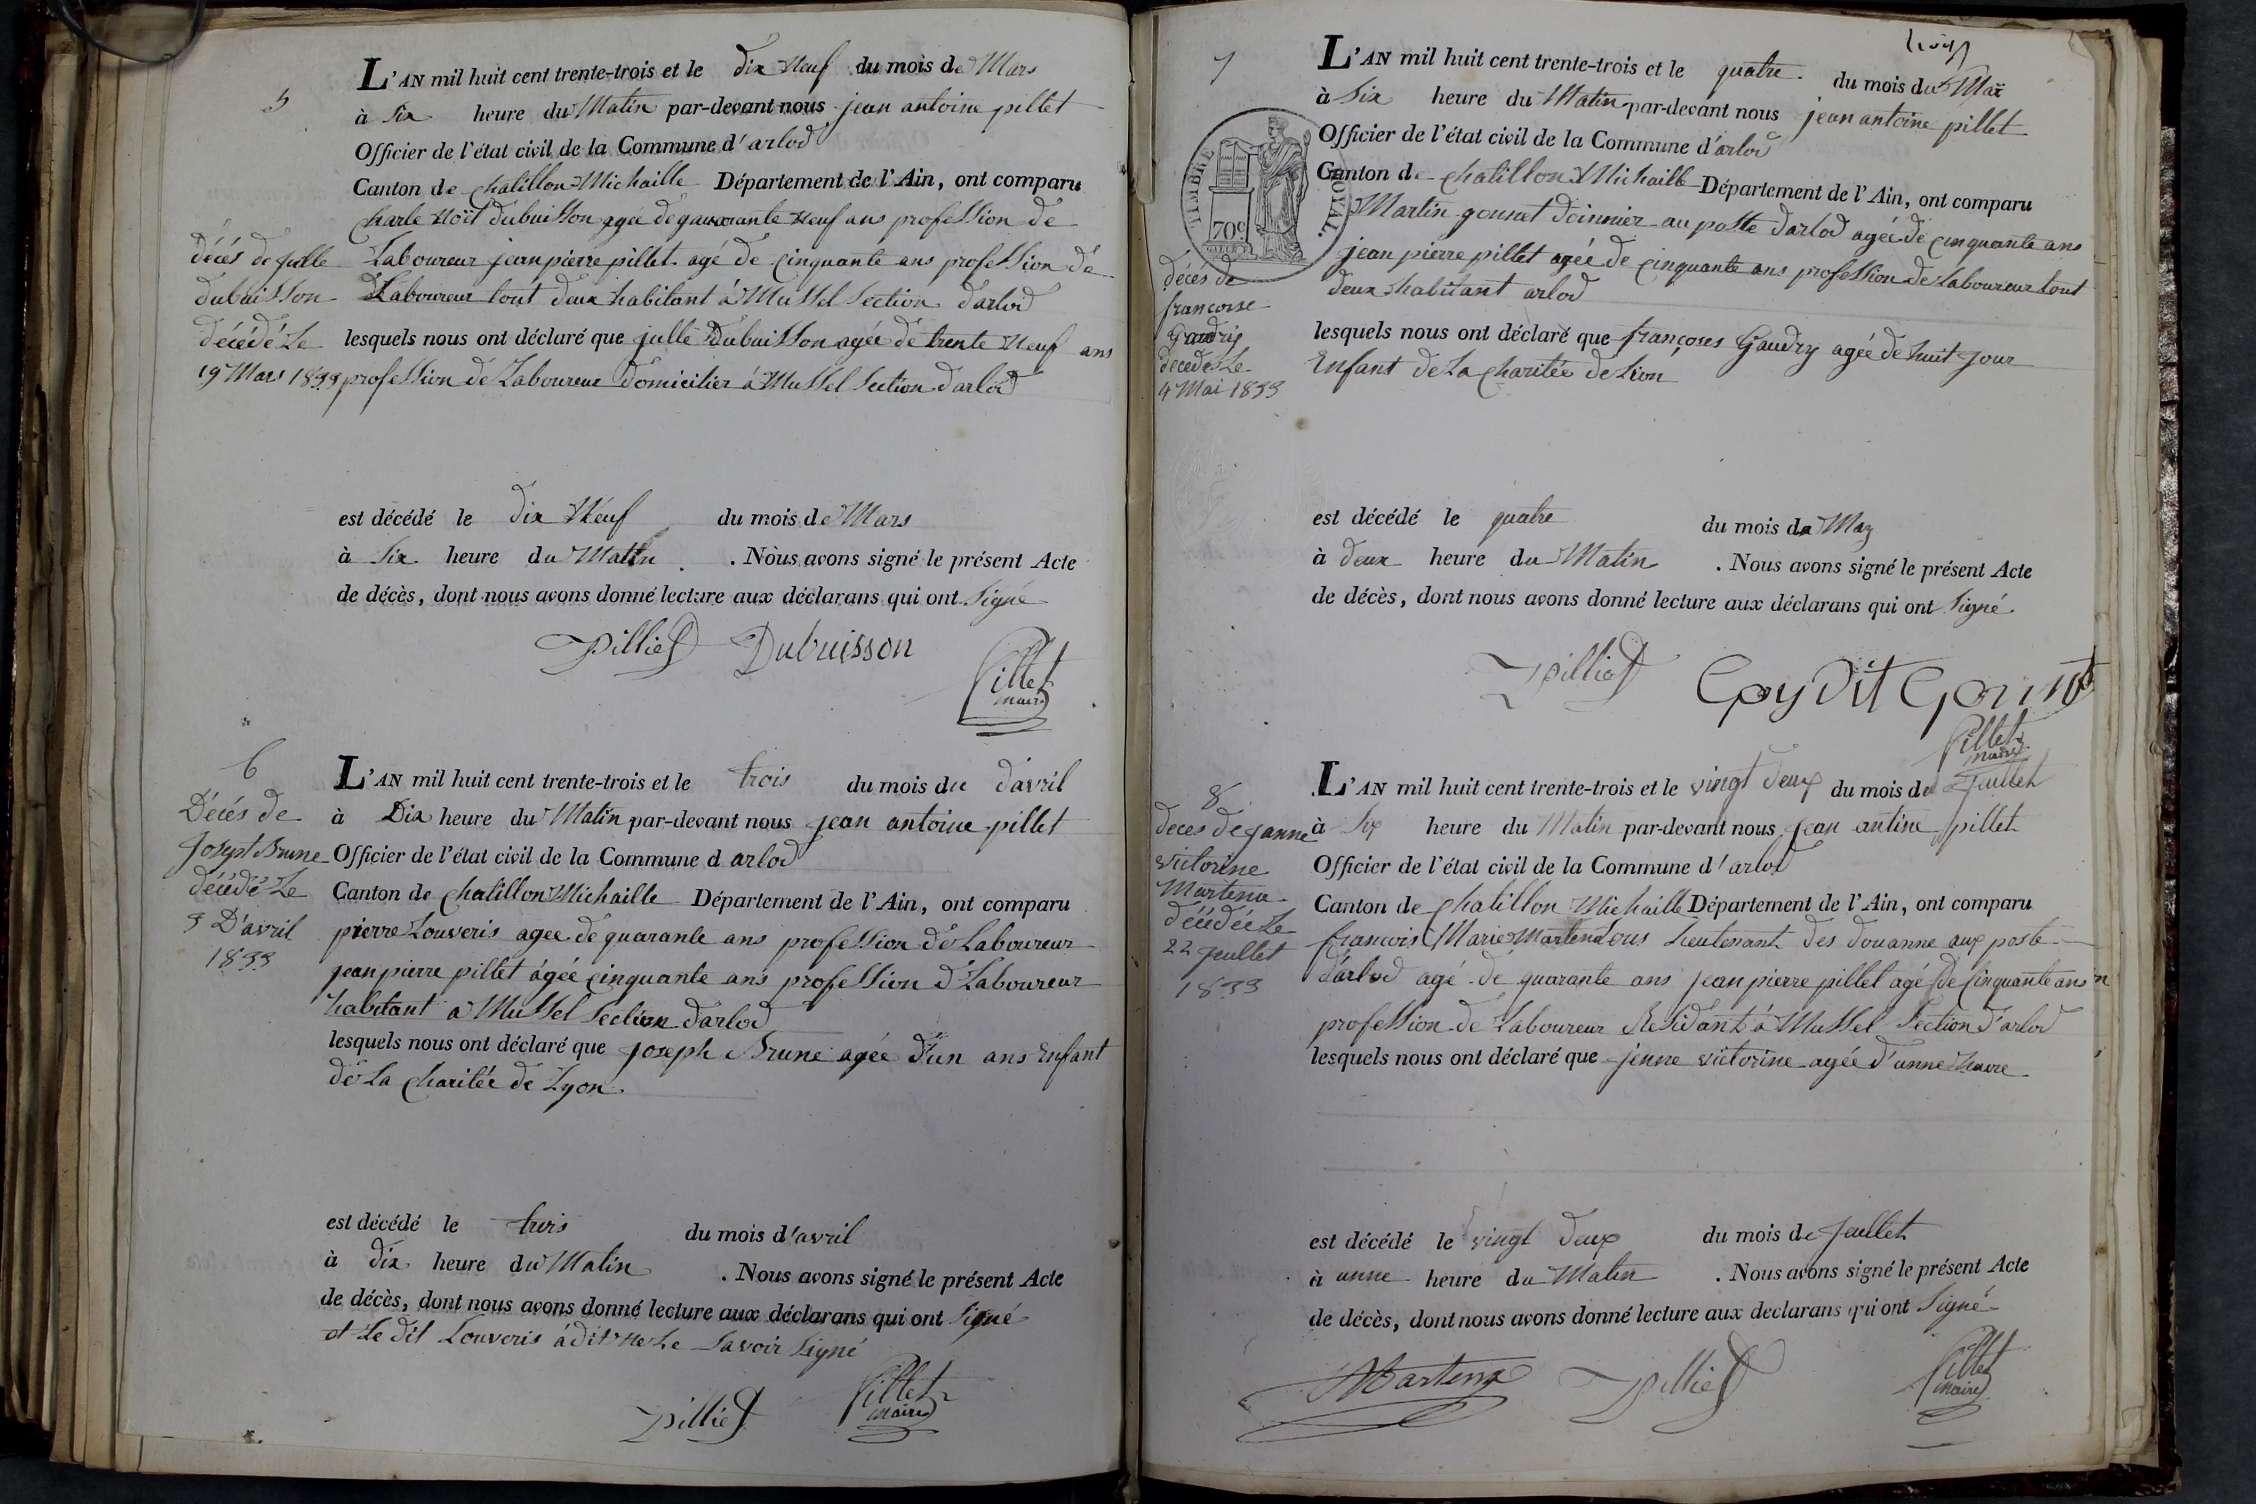 5
L'AN mil huit cent trente-trois et le dix Neuf du mois de Mars
à Six heure du Matin par-devant nous jean antoine pillet
Officier de l'état civil de la Commune d'arlod
Canton de Chatillon Michaille Département de l'Ain, ont comparu
Charle Noël dubuisson agée de quarante Neuf ans profession de
Laboureur jean pierre pillet agé de Cinquante ans profession de
Laboureur tout deux habitant à Mussel Section d'arlod
lesquels nous ont déclaré que julle Dubuisson agée de trente Neuf ans
profession de Laboureur domicilier à Mussel Section d'arlod
décés de julle
dubuisson
décédé Le
19 Mars 1833
est décédé le dix Neuf du mois de Mars
à Six heure du Matin . Nous avons signé le présent Acte
de décès, dont nous avons donné lecture aux déclarans qui ont Signé
Pillied Dubuisson
Pillet
maire
6
Décés de
Joseph Brune
décédé Le
3 D'avril
1833
L'AN mil huit cent trente-trois et le trois du mois du d'avril
à Dix heure du Matin par-devant nous jean antoine pillet
Officier de l'état civil de la Commune d arlod
Canton de Chatillon Michaille Département de l'Ain, ont comparu
pierre Louveris agee de quarante ans profession de Laboureur
jean pierre pillet âgée cinquante ans profession d Laboureur
habitant a Mussel Section d'arlod
lesquels nous ont déclaré que joseph Brune agée d'un ans Enfant
de La Charitée de Lyon
est décédé le trois du mois d'avril
à dix heure du Matin . Nous avons signé le présent Acte
de décès, dont nous avons donné lecture aux déclarans qui ont Signé
et Le dit Louveris à dit ne Le Savoir Signé
Pillied Pillet
maire
7
L'AN mil huit cent trente-trois et le quatre du mois du Maï
à Six heure du Matin par-devant nous jean antoine pillet
Officier de l'état civil de la Commune d'arlod
Canton de Chatillon Michaille Département de l'Ain, ont comparu
Martin gonnet au poste d'arlod agée de cinquante ans
jean pierre pillet agée de cinquante ans profession de Laboureur tout
deux habitant arlod
lesquels nous ont déclaré que françoises Gaudry agée de huit jour
Enfant de La Charitée de Lion
TIMBRE ROYAL.
70c
décès de
francoise
Gaudry
decedes Le
4 Mai 1833
est décédé le quatre du mois de May
à deux heure du Matin . Nous avons signé le présent Acte
de décès, dont nous avons donné lecture aux déclarans qui ont Signé
Pillied
Pillet
maire
8
deces de janne
victorine
Martena
décédée Le
22 juillet
1833
L'AN mil huit cent trente-trois et le vingt deux du mois de Juillet
à Six heure du Matin par-devant nous jean antine pillet
Officier de l'état civil de la Commune d'arlod
Canton de Chatillon Michaille Département de l'Ain, ont comparu
francois Marie Martena Sous Lieutenant des douanne aux poste
d'arlod agé de quarante ans jean pierre pillet agé de cinquante ans
profession de Laboureur Residant à Mussel Section d'arlod
lesquels nous ont déclaré que jenne victorine agée d'unne heure
est décédé le vingt deux du mois de juillet
à unne heure du Matin . Nous avons signé le présent Acte
de décès, dont nous avons donné lecture aux declarans qui ont Signé
Martena Pillied Pillet
maire